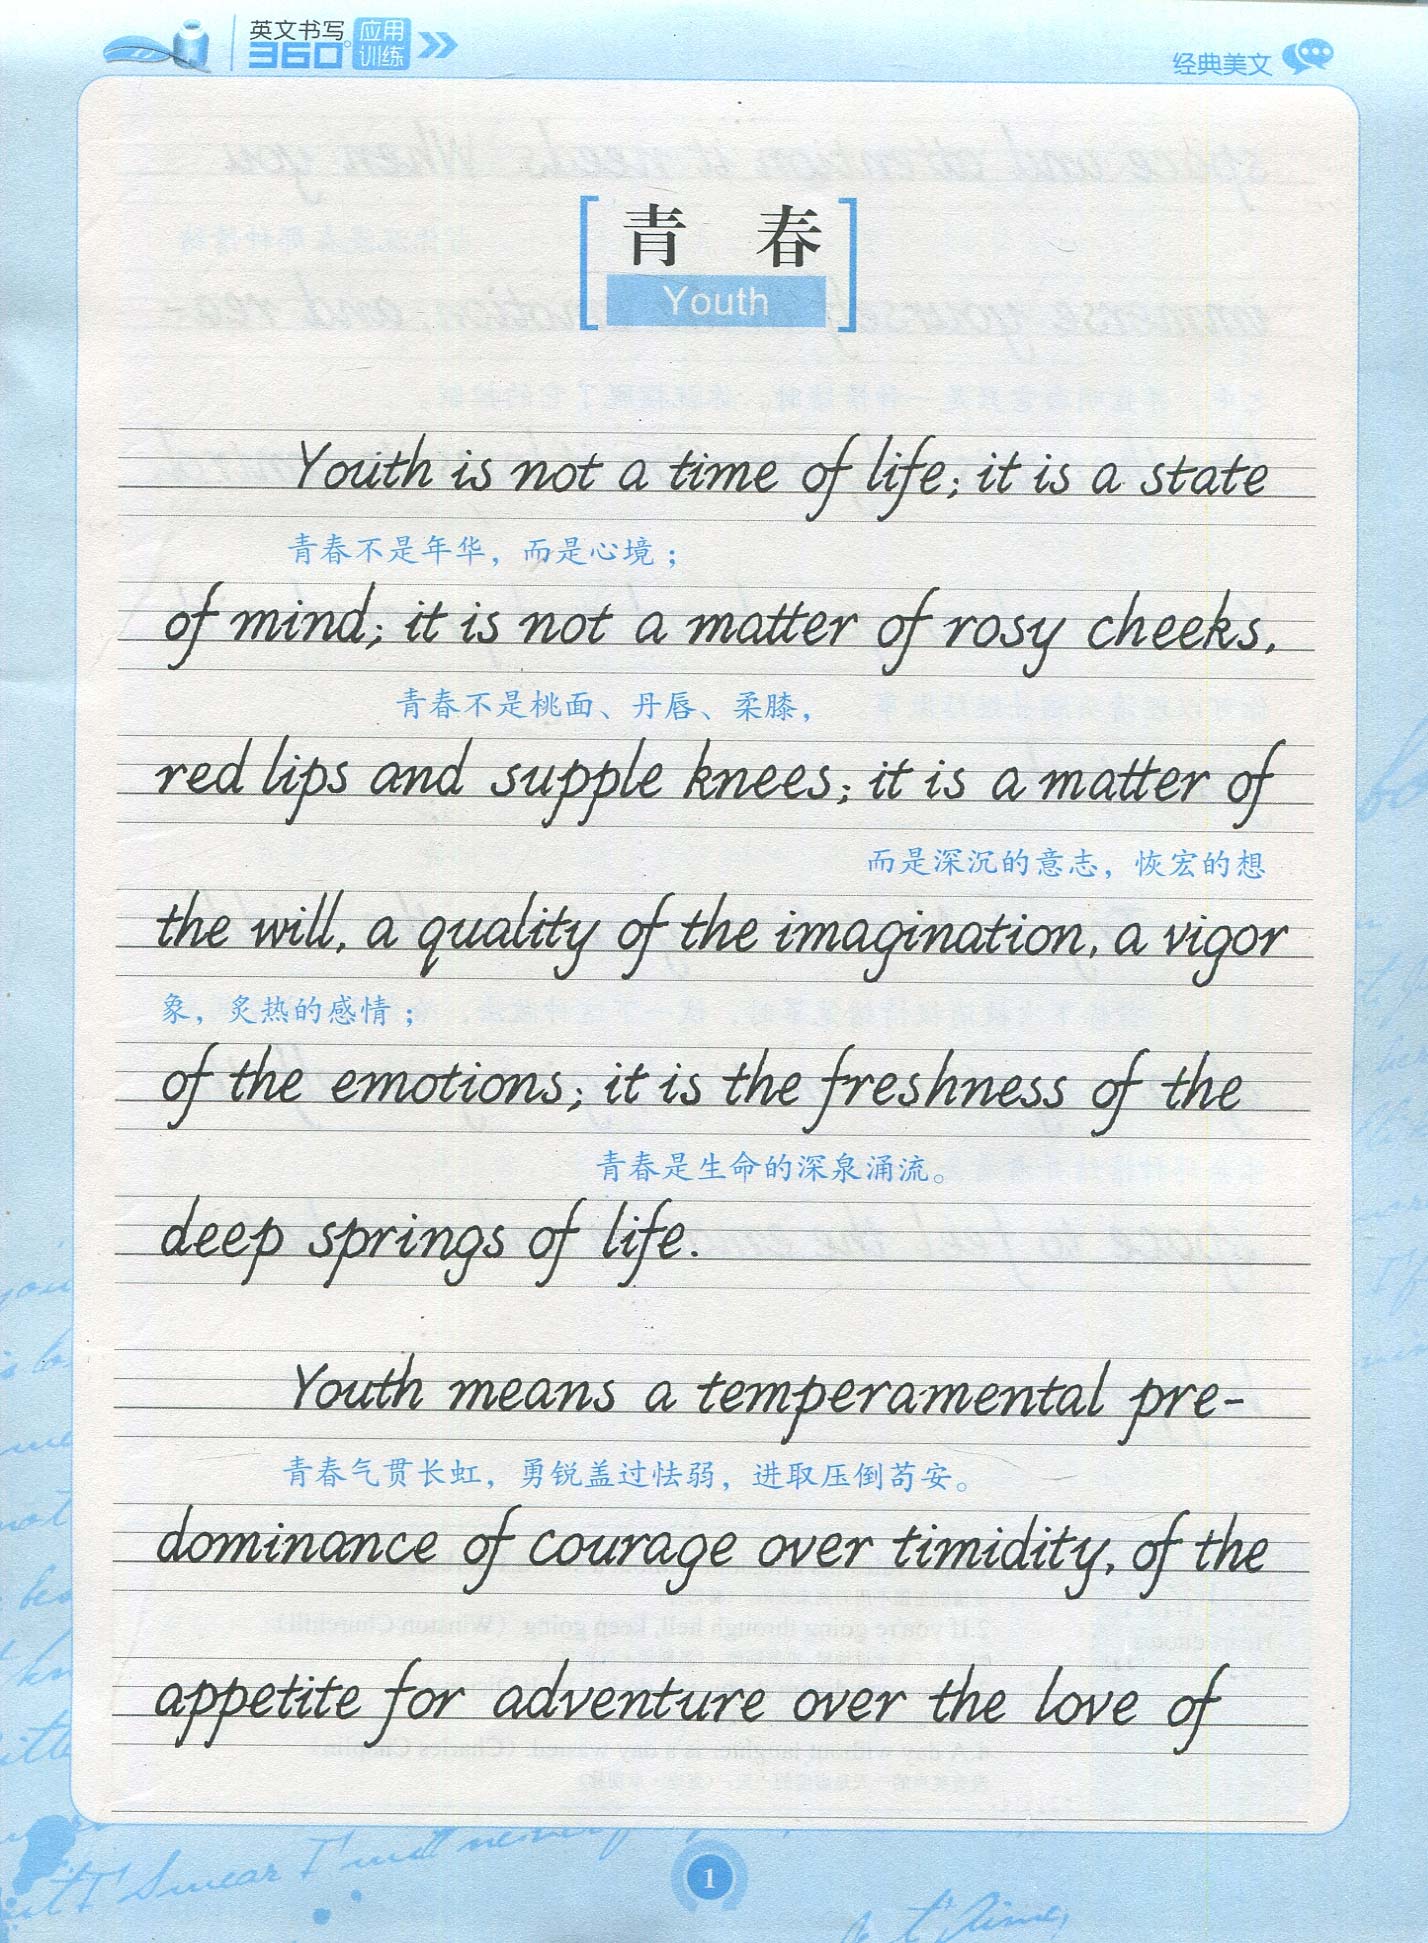 英文书写
360°
应用
训练
经典美文
青 春
Youth
Youth is not a time of life; it is a state
青春不是年华，而是心境；
of mind; it is not a matter of rosy cheeks,
青春不是桃面、丹唇、柔膝，
red lips and supple knees; it is a matter of
而是深沉的意志，恢宏的想
the will, a quality of the imagination, a vigor
象，炙热的感情；
of the emotions; it is the freshness of the
青春是生命的深泉涌流。
deep springs of life.
Youth means a temperamental pre-
青春气贯长虹，勇锐盖过怯弱，进取压倒苟安。
dominance of courage over timidity, of the
appetite for adventure over the love of
1